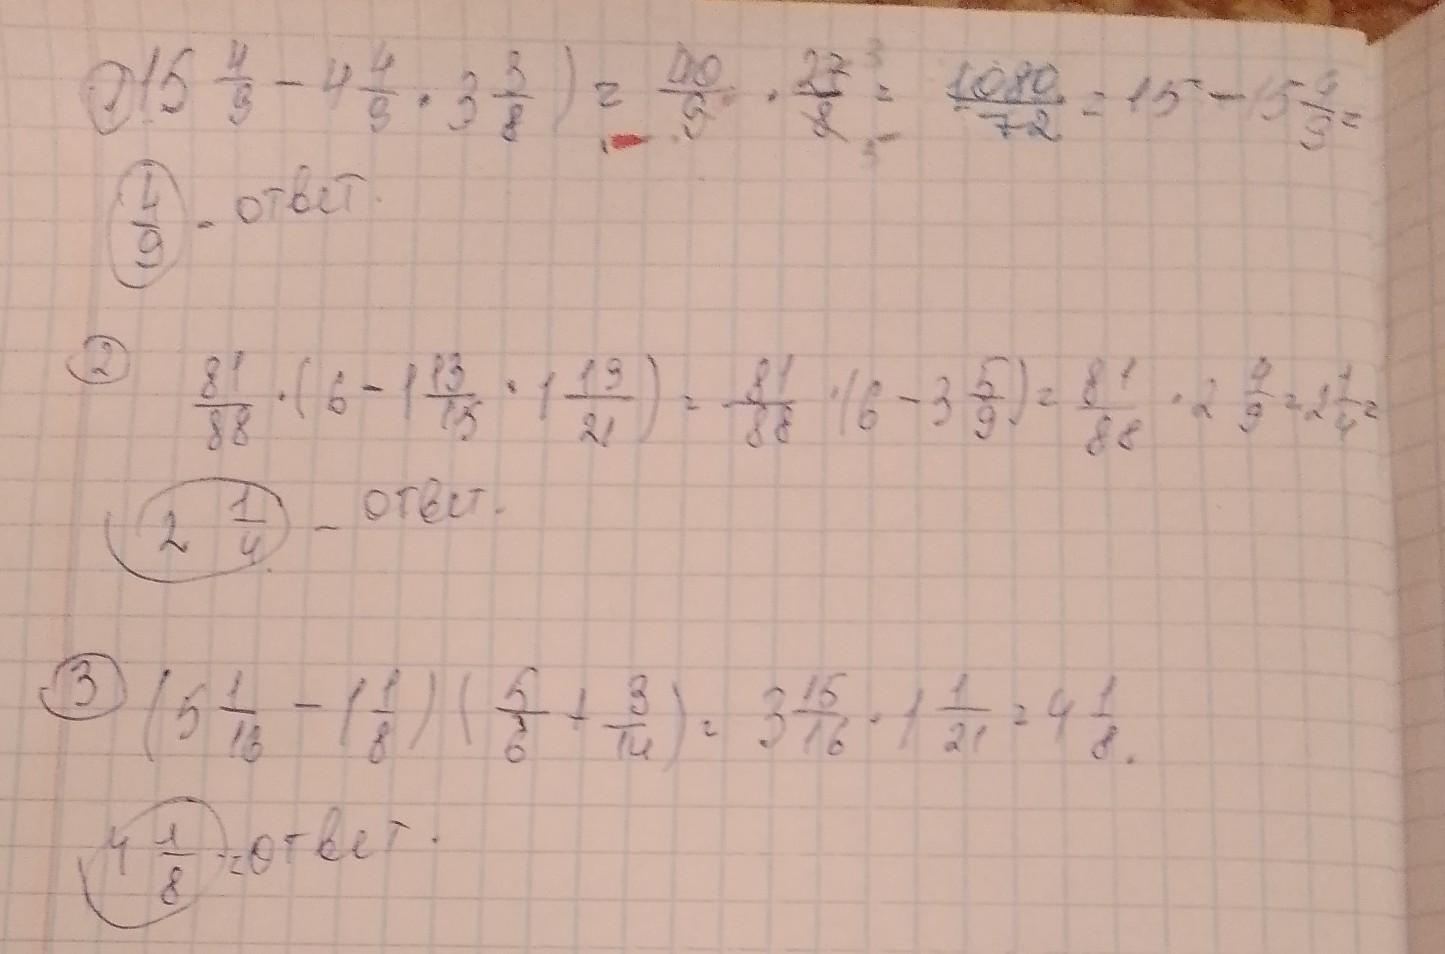 1) 15 4/9 - 4 4/9 · 3 3/8 ) = 40/9 · 27/8 = 1080/72 = 15 - 15 4/9 =
4/9 - ответ.
2 81/88 · ( 6 - 1 13/15 · 1 19/21 ) = 81/88 · (6 - 3 5/9 ) = 81/88 · 2 4/9 = 2 1/4 =
2 1/4 - ответ.
3 ( 5 1/16 - 1 1/8 ) ( 5/6 + 3/14 ) = 3 15/16 · 1 1/21 = 4 1/8 .
4 1/8 = ответ.